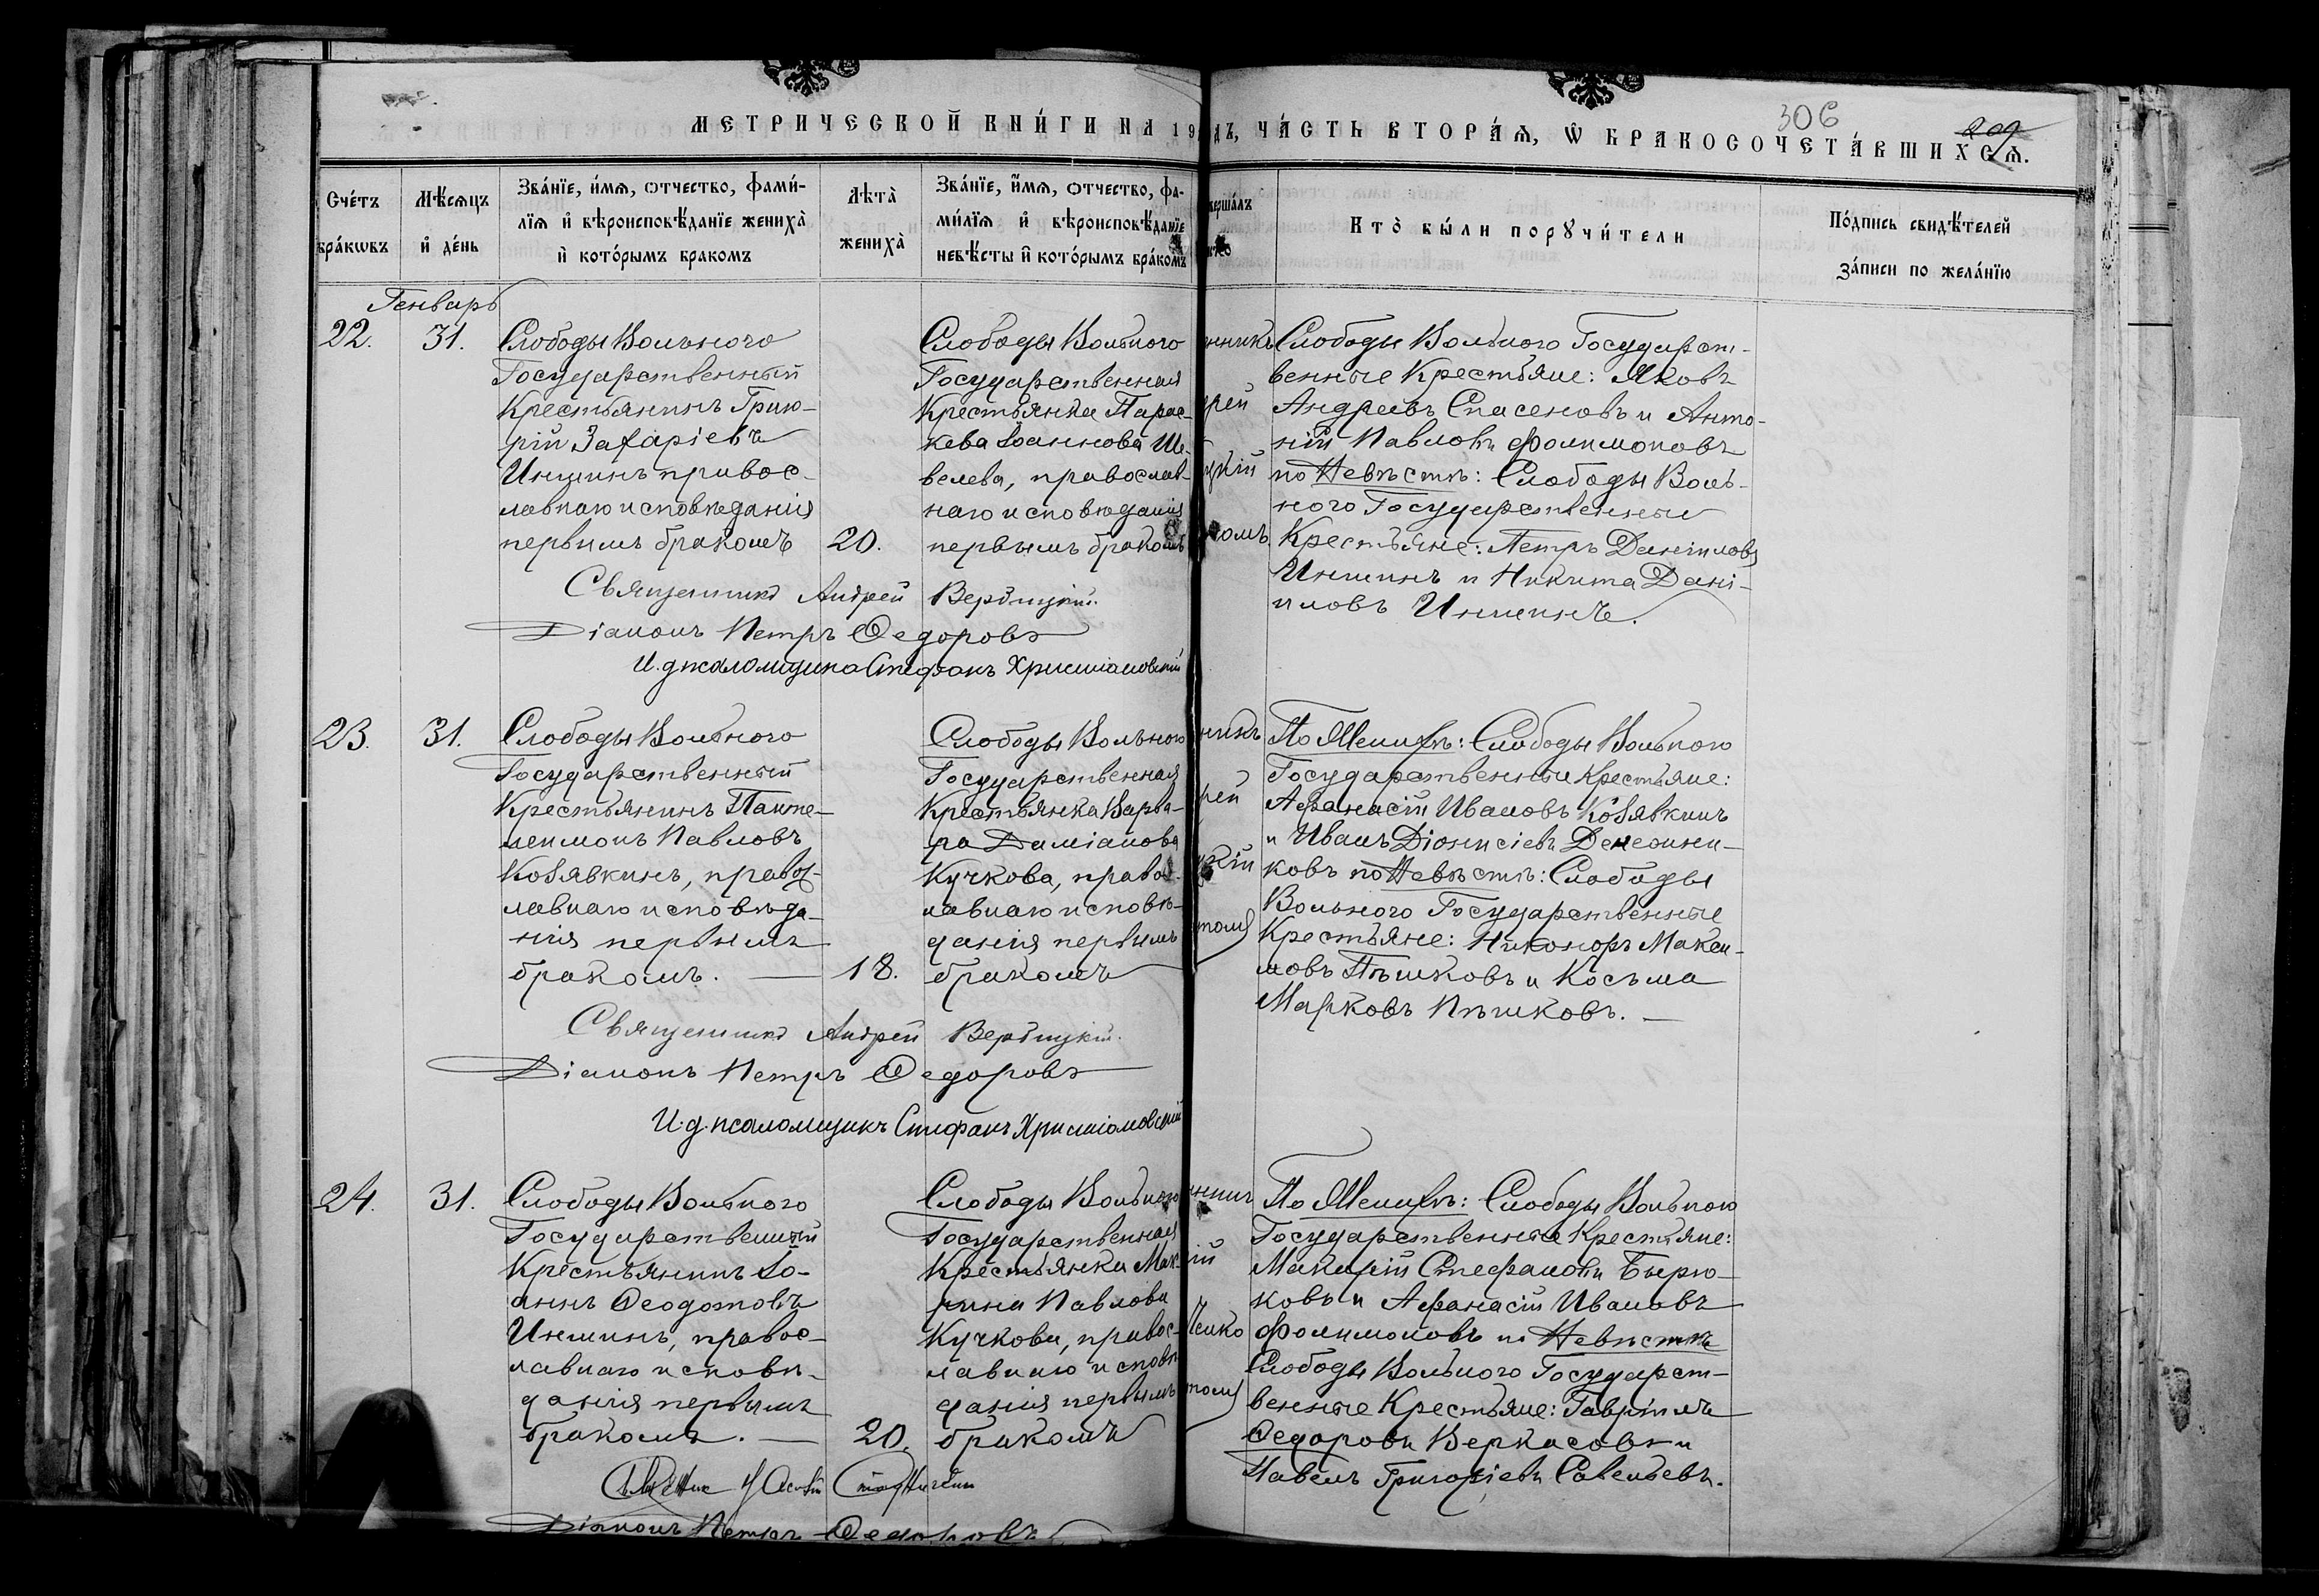 306
209
МЕТРИЧЕСКОЙ КНИ́ГИ НА 19
ДЪ, ЧА́СТЬ ВТОРА́Ѧ, Ѡ БРАКОСОЧЕТА́ВШИХСѦ.
Сче́тъ бра́кѡвъ
Мѣ́сѧцъ и҆ де́нь
Зва́нїе, и҆́мѧ, ѻтчество, фами́-
лїѧ и҆ вѣроисповѣ́данїе жениха̀
и҆ кото́рымъ бракомъ
Лѣта̀ жениха̀
Зва́нїе, и҆́мѧ, ѻтчество, фа-
ми́лїѧ и҆ вѣроисповѣ́данїе
невѣ́сты и҆ кото́рымъ бра́комъ
верша́лъ
Кто̀ бы́ли порꙋчи́тели
По́дпись свидѣ́телей
за́писи по жела́нїю
Генварь
22.
31.
Слободы Вольного
Государственный
Крестьянинъ Григо-
рій Захаріевъ
Иншинъ правос-
лавнаго исповѣданія
первымъ бракомъ
20.
Слободы Вольного
Государственная
Крестьянка Парас-
кева Іоаннова Ше-
велева, православ-
наго исповѣданія
первымъ бракомъ
нникъ
рей
цкій
комъ
Слободы Вольного Государст-
венные Крестьяне: Яковъ
Андреевъ Спасеновъ и Анто-
ній Павловъ Филимоновъ
по Невѣстѣ: Слободы Воль-
ного Государственные
Крестьяне: Петръ Даніиловъ
Иншинъ и Никита Дані-
иловъ Иншинъ.
Священникъ Андрей Вербицкій.
Діаконъ Петръ Ѳедоровъ
И.д. псаломщика Стефанъ Христіановскій
23.
31.
Слободы Вольного
Государственный
Крестьянинъ Панте-
леимонъ Павловъ
Козявкинъ, правос-
лавнаго исповѣда-
нія первымъ
бракомъ.
18.
Слободы Вольного
Государственная
Крестьянка Варва-
ра Даміанова
Кучкова, правос-
лавнаго исповѣ-
данія первымъ
бракомъ
никъ
рей
цкій
По Женихѣ: Слободы Вольного
Государственные Крестьяне:
Афанасій Ивановъ Козявкинъ
и Иванъ Діонисіевъ
ковъ по Невѣстѣ: Слободы
Вольного Государственные
Крестьяне: Никоноръ Макси-
мовъ Пѣшковъ и Косьма
Марковъ Пѣшковъ.
Священникъ Андрей Вербицкій.
Діаконъ Петръ Ѳедоровъ
И.д. псаломщикъ Стефанъ Христіановскій
24.
31.
Слободы Вольного
Государственный
Крестьянинъ Іо-
аннъ Ѳеодотовъ
Иншинъ, правос-
лавнаго исповѣ-
данія первымъ
бракомъ.
20.
Слободы Вольного
Государственная
Крестьянка Мак-
рина Павлова
Кучкова, правос-
лавнаго исповѣ
данія первымъ
бракомъ
ій
По Женихѣ: Слободы Вольного
Государственные Крестьяне:
Макарій Стефановъ Бирю-
ковъ и Афанасій Ивановъ
Филимоновъ по Невѣстѣ
Слободы Вольного Государст-
венные Крестьяне: Гавріилъ
Ѳедоровъ Веркасовъ и
Павелъ Григоріевъ Савельевъ.
Діаконъ Петръ Ѳедоровъ